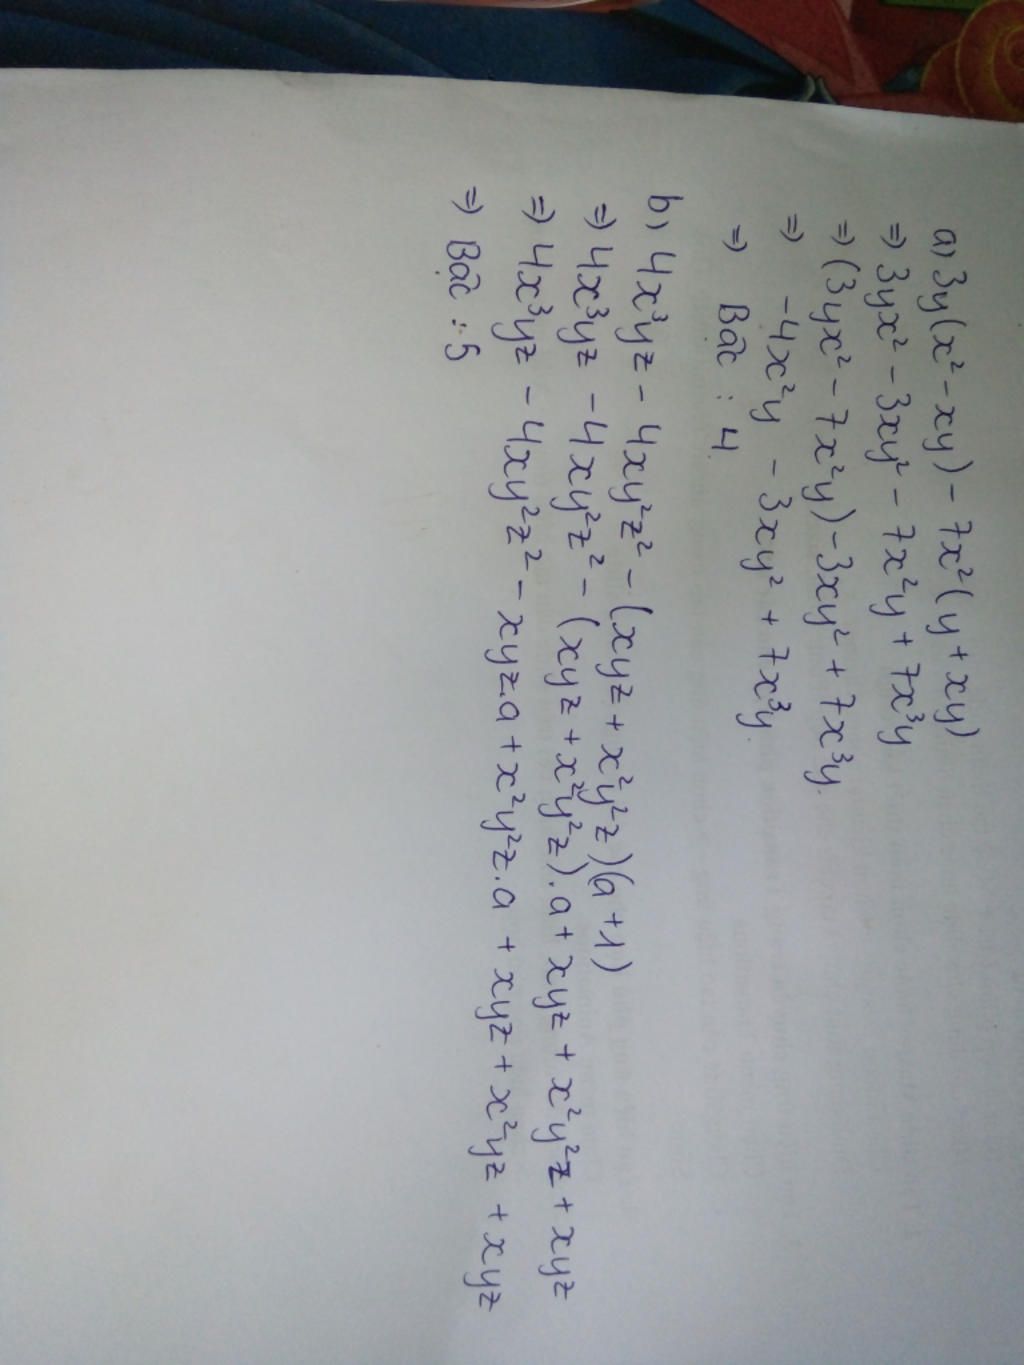 a) 3y(x² - xy) - 7x²(y + xy)
=) 3yx² - 3xy² - 7x²y + 7x³y
=) (3yx² - 7x²y) - 3xy² + 7x³y.
=) -4x²y - 3xy² + 7x³y.
=) Bậc : 4
b) 4x³yz - 4xy²z² - (xyz + x²y²z)(a+1)
=) 4x³yz - 4xy²z² - (xyz + x²y²z).a + xyz + x²y²z + xyz
=) 4x³yz - 4xy²z² - xyz.a + x²y²z.a + xyz + x²yz + xyz
=) Bậc : 5